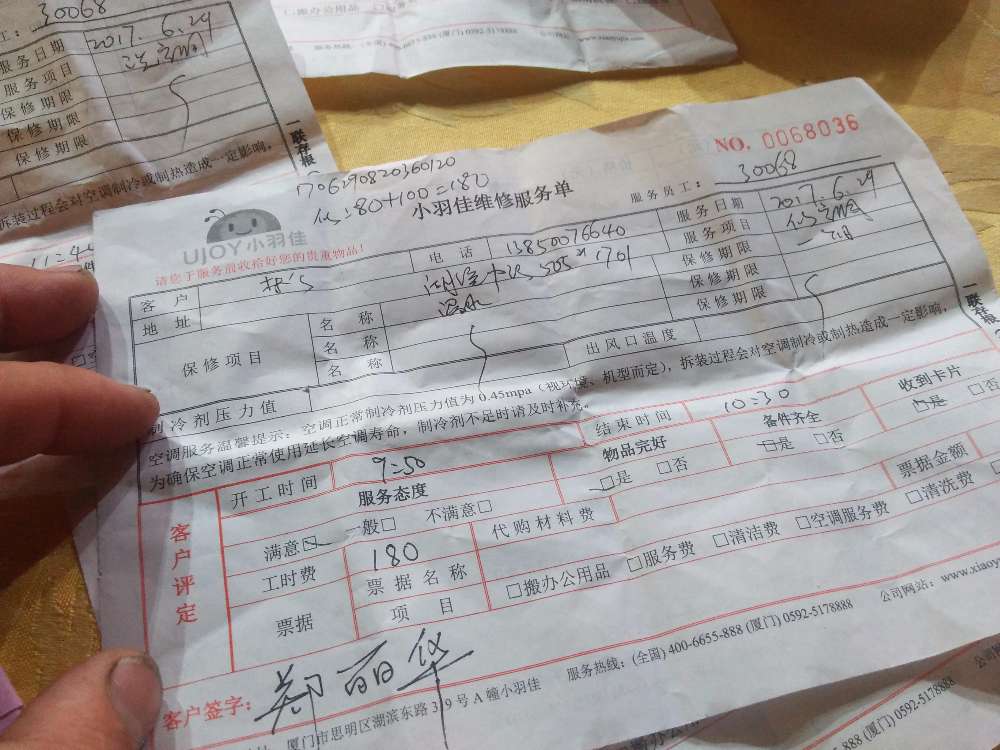 30068
服务日期 2017.6.29
服务项目
保修期限
保修期限
保修期限
拆装过程会对空调制冷或制热造成一定影响，
一联存根
搬办公用品
(厦门) 0592-5178888
NO. 0068036
170629082036０120
80+100=180
小羽佳维修服务单
服务员工: 30068
UJOY小羽佳
请您于服务前收拾好您的贵重物品!
客户
电话 13850076640
服务日期 2017.6.29
地址
505
1701
服务项目
保修项目
名称
保修期限
名称
保修期限
名称
出风口温度
保修期限
制冷剂压力值
空调服务温馨提示: 空调正常制冷剂压力值为 0.45mpa (视环境、机型而定), 拆装过程会对空调制冷或制热造成一定影响,
为确保空调正常使用延长空调寿命, 制冷剂不足时请及时补充。
一联存根
客户评定
开工时间 9:50
结束时间 10:30
服务态度
物品完好
备件齐全
收到卡片
满意□ 一般□ 不满意□
□是 □否
□是 □否
□是 □否
工时费 180
代购材料费
票据金额
票据
票据名称
项目
□搬办公用品 □服务费 □清洁费 □空调服务费 □清洗费
客户签字: 郑丽华
服务热线: (全国) 400-6655-888 (厦门) 0592-5178888
公司网站: www.xiaoyu
厦门市思明区湖滨东路 319 号 A 幢小羽佳
(厦门) 0592-5178888